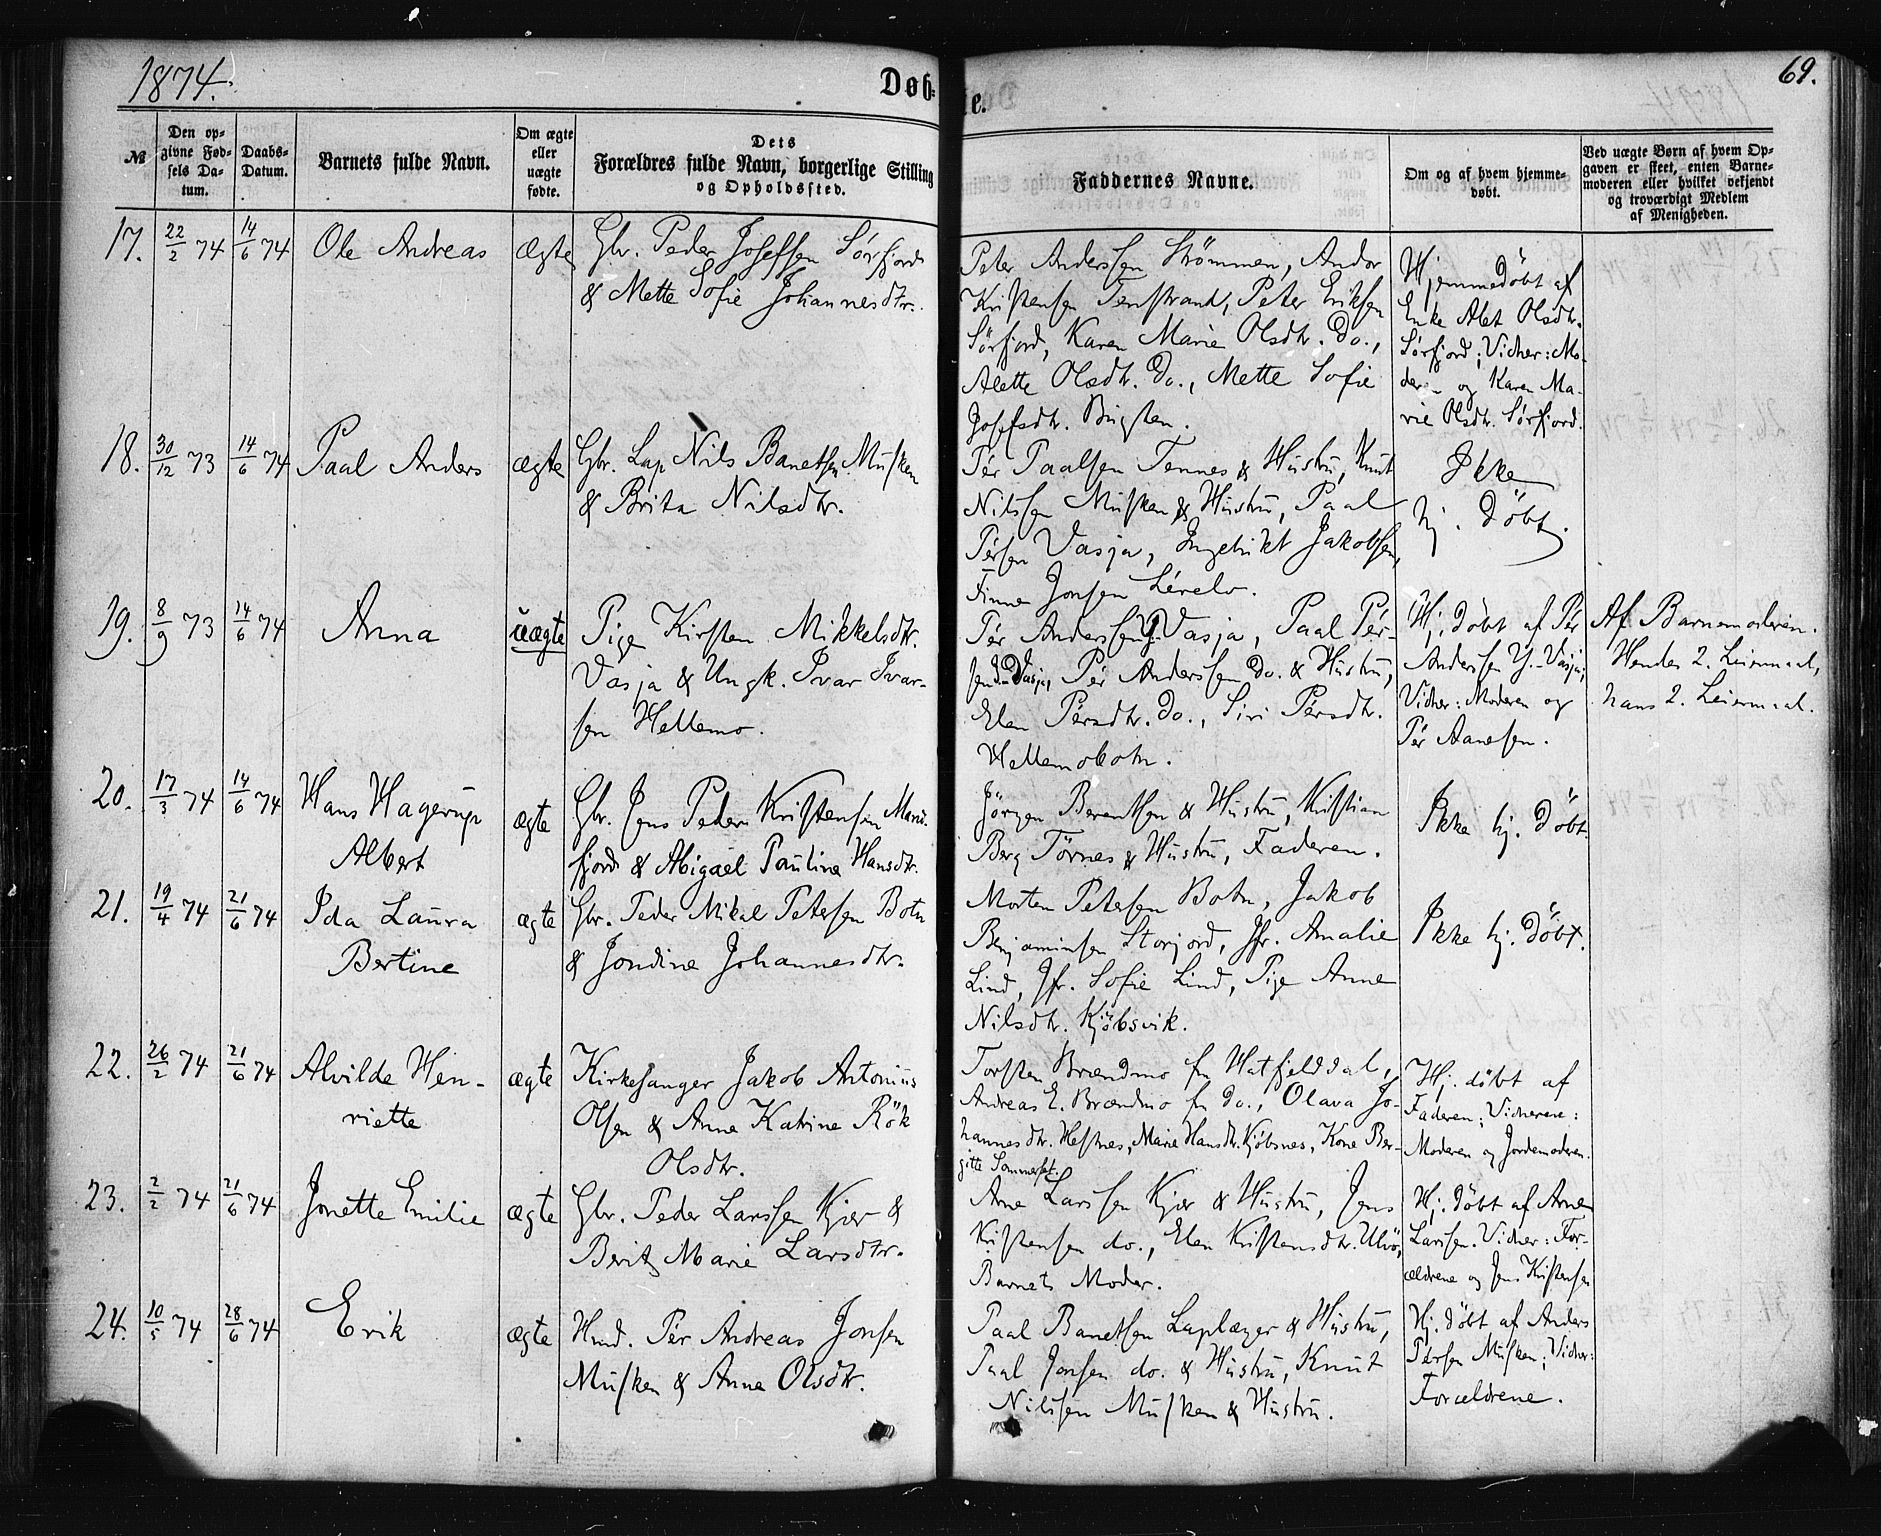 1874.
Døb-
e.
69.
№
Den op-
givne Fød-
sels Da-
tum.
Daabs-
Datum.
Barnets fulde Navn.
Om ægte
eller
uægte
fødte.
Dets
Forældres fulde Navn, borgerlige Stilling
og Opholdssted.
Faddernes Navne.
Om og af hvem hjemme-
døbt.
Ved uægte Børn af hvem Op-
gaven er skeet, enten Barne-
moderen eller hvilket bekjendt
og troværdigt Medlem
af Menigheden.
17. 22/2 74 14/6 74 Ole Andreas ægte
Gbr. Peder Joseffsen Sørfjord
& Mette Sofie Johannesdtr.
Peter Anderssen Strömmen, Andor
Kristensen Tenstrand, Peter Eriksen
Sörfjord, Karen Marie Olsdtr. do.,
Alette Olsdtr. do., Mette Sofie
Joseffsdtr.
Hjemmedöbt af
Enke Alet Olsdtr.
Sørfjord; Vidner: Mo-
deren og Karen Ma-
rie Olsdtr. Sørfjord.
18. 30/12 73 14/6 74 Paal Anders ægte
Gbr. Lap Nils Banetsen Musken
& Brita Nilsdtr.
Pér Paalsen Tennes & Hustru, Knut
Nilssen Musken & Hustru, Paal
Pérsen Vasja, Ingebrikt Jakobsen,
Finne Jonsen
Ikke
hj. döbt.
19. 8/9 73 14/6 74 Anna uægte
Pige Kirsten Mikkelsdtr.
Vasja & Ungk. Ivar Ivar-
sen Hellemo.
Pér Anderssen Y. Vasja, Paal Pér-
sen Vasja, Pér Anderssen do. & Hustru,
Elen Pérsdtr. do., Siri Pérsdtr.
Hellemobotn.
Hj. döbt af Pér
Anderssen Y. Vasja;
Vidner: Moderen og
Pér Aanesen.
Af Barnemoderen.
Hendes 2. Leiermaal,
hans 2. Leiermaal.
20. 17/3 74 14/6 74 Hans Hagerup
Albert
ægte
Gbr. Jens Peder Kristensen Mann-
fjord & Abigael Paulina Hansdtr.
Jörgen Berentsen & Hustru, Kristian
Berg Törnes & Hustru, Faderen.
Ikke hj. döbt.
21. 19/4 74 21/6 74 Ida Laura
Bertine
ægte
Gbr. Peder Mikal Petersen Botn
& Jondine Johannesdtr.
Morten Petersen Botn, Jakob
Benjaminsen Storjord, Jfr. Amalie
Lind, Jfr. Sofie Lind, Pige Anne
Nilsdtr. Kjöbsvik.
Ikke hj. döbt.
22. 26/2 74 21/6 74 Alvilde Hen-
riette
ægte
Kirkesanger Jakob Antonius
Olsen & Anne Katrine Rök
Olsdtr.
Torsten Brændmo fr. Hatfjelddal,
Andreas E. Brændmo fr. do., Olava Jo-
hannesdtr. Hestnes, Marie Hansdtr. Kjöbsnes, Kone Ber-
gitte Sommerset.
Hj. döbt af
Faderen; Vidnerne:
Moderen og Jordemoderen.
23. 2/2 74 21/6 74 Jonette Emilie ægte
Gbr. Peder Larssen Kjær &
Berit Marie Larsdtr.
Arne Larssen Kjær & Hustru, Jens
Kristensen do., Elen Kristensdtr. Ulvö,
Barnets Moder.
Hj. döbt af Arne
Larssen. Vidner: For-
ældrene og Jens Kristensen
24. 10/5 74 28/6 74 Erik ægte
Hmd. Pér Andreas Jonsen
Musken & Anna Olsdtr.
Paal Banetsen Laplæger & Hustru,
Paal Jonsen do. & Hustru, Knut
Nilssen Musken & Hustru.
Hj. döbt af Anders
Pérsen Musken; Vidner:
Forældrene.